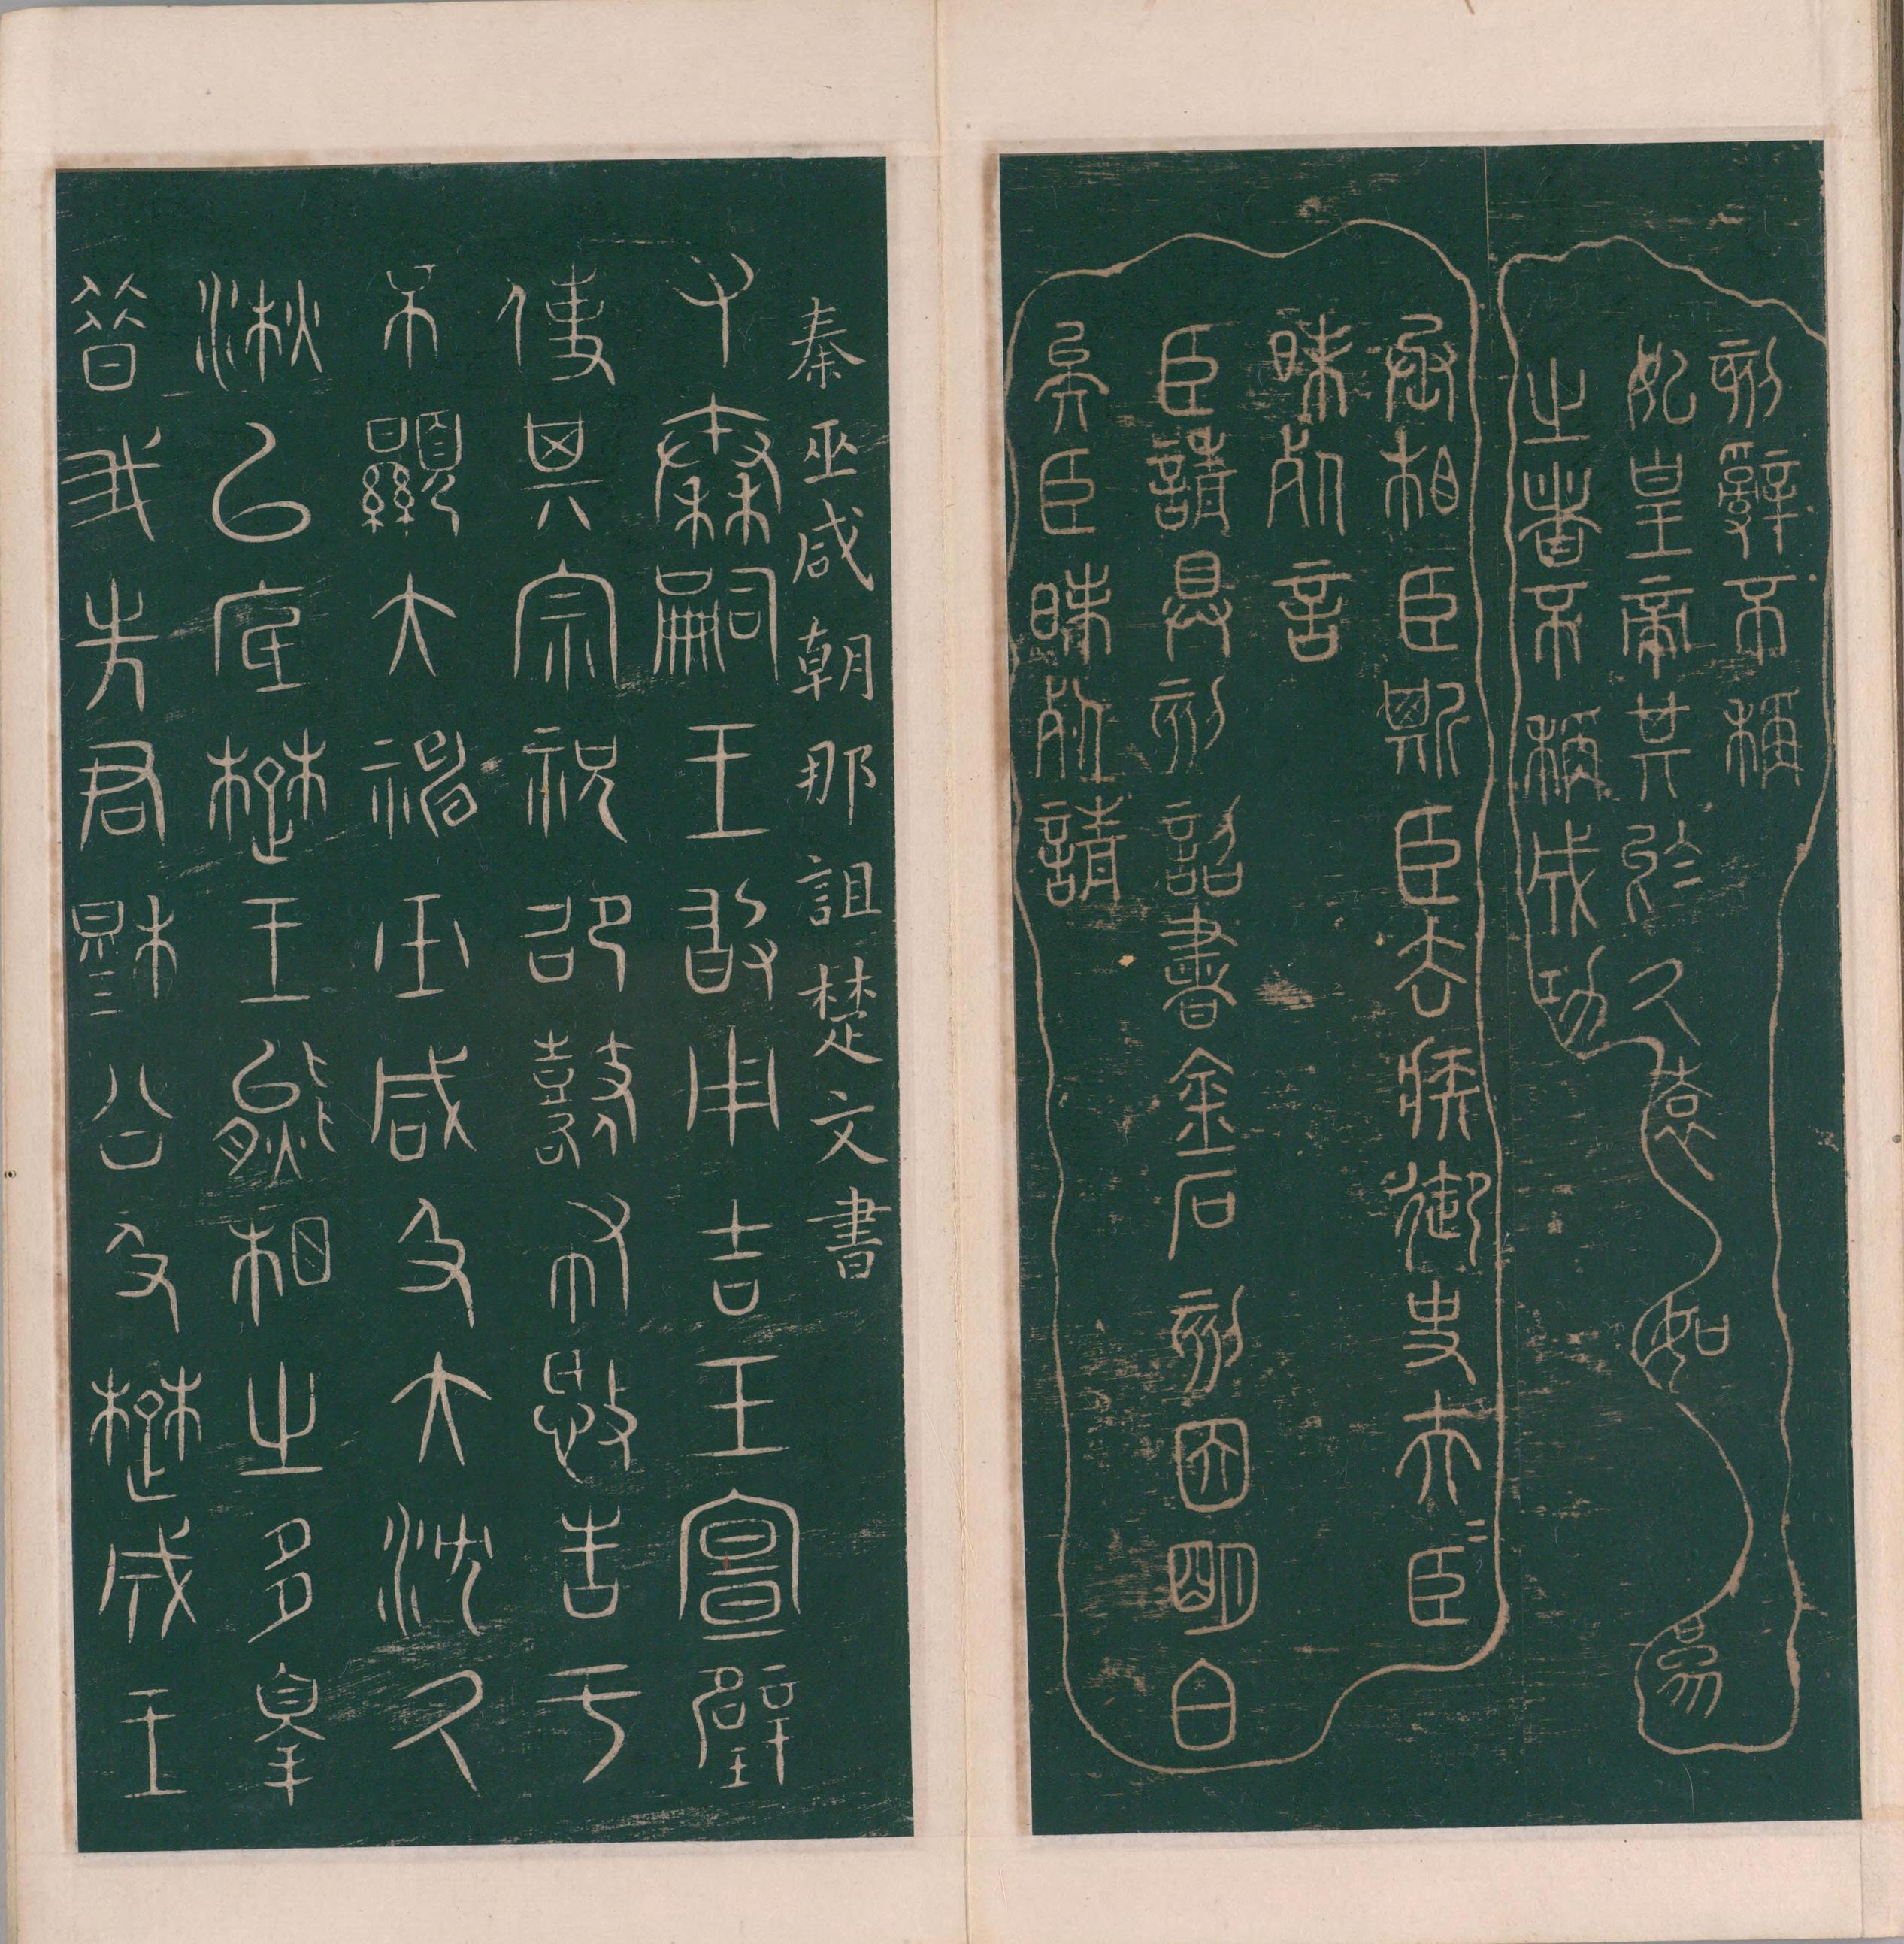 刻辭不稱
始皇帝其於久遠如
之者不稱成功
丞相臣斯臣去疾御史夫=臣
昧死言
臣請具刻詔書金石刻因明白
矣臣昧死請
秦巫咸朝那詛楚文書
又秦嗣王敢用吉玉宣璧
使其宗祝邵鼛布憝告于
不顯大神巫咸及大沈久
湫以底楚王熊相之多辠
昔我先君穆公及楚成王